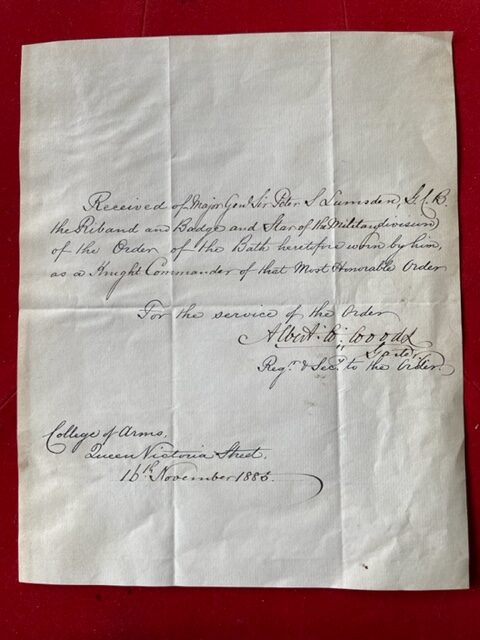 Received of Major Genl Sir Peter S Lumsden, G.C.B.
the Riband and Badge and Star of the Military division
of the Order of the Bath heretofore worn by him,
as a Knight Commander of that Most Honorable Order
For the service of the Order
Albert W. Woods
Garter
Regr. & Secy. to the Order.
College of Arms,
Queen Victoria Street.
16th November 1885.